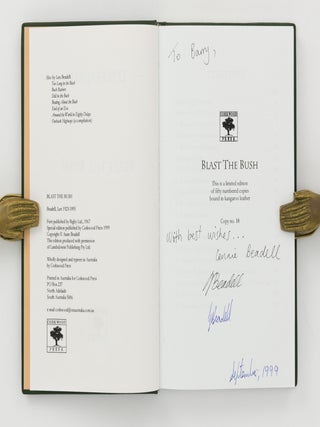 Also by Len Beadell
Too Long in the Bush
Bush Bashers
Still in the Bush
Beating About the Bush
End of an Era
Around the World in Eighty Delays
Outback Highways (a compilation)
BLAST THE BUSH
Beadell, Len 1923-1995
First published by Rigby Ltd., 1967
Special edition published by Corkwood Press 1999
Copyright © Anne Beadell
This edition produced with permission
of Lansdowne Publishing Pty Ltd
Wholly designed and typeset in Australia
by Corkwood Press
Printed in Australia for Corkwood Press
PO Box 237
North Adelaide
South Australia 5006
To Barry,
CORKWOOD
PRESS
BLAST THE BUSH
This is a limited edition
of fifty numbered copies
bound in kangaroo leather
Copy no. 18
With best wishes...
Connie Beadell
Beadell
Beadell
September, 1999